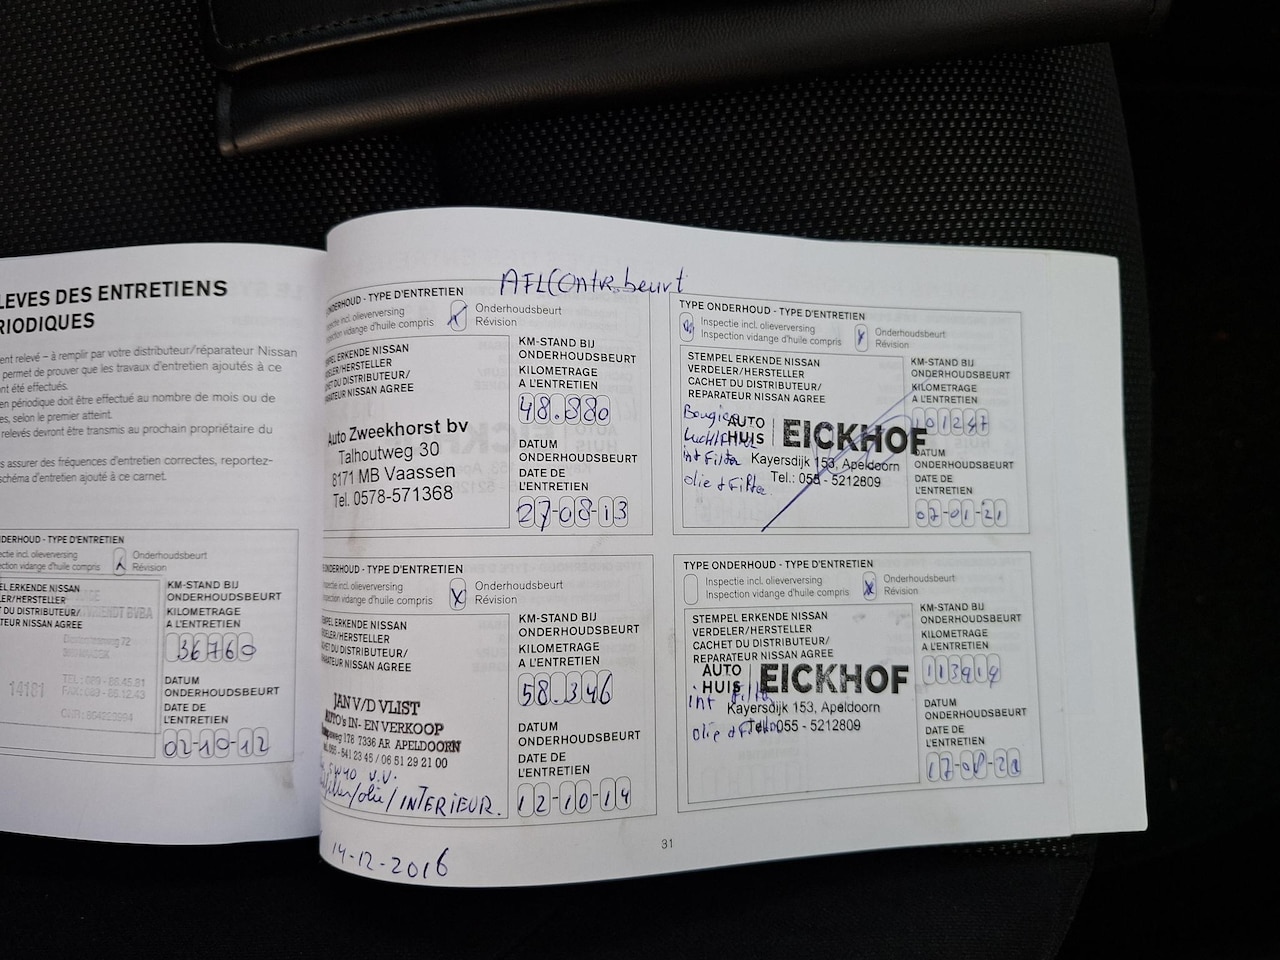 LEVES DES ENTRETIENS
RIODIQUES
ent relevé – à remplir par votre distributeur/réparateur Nissan
permet de prouver que les travaux d'entretien ajoutés à ce
nt été effectués.
en périodique doit être effectué au nombre de mois ou de
es, selon le premier atteint.
relevés devront être transmis au prochain propriétaire du
s assurer des fréquences d'entretien correctes, reportez-
schéma d'entretien ajouté à ce carnet.
DERHOUD - TYPE D'ENTRETIEN
ctie incl. olieverversing
ction vidange d'huile compris
Onderhoudsbeurt
Révision
EL ERKENDE NISSAN
ER/HERSTELLER
T DU DISTRIBUTEUR/
TEUR NISSAN AGREE
72
14181
TEL : 089 - 86.45.81
FAX : 089 - 86.12.43
KM-STAND BIJ
ONDERHOUDSBEURT
KILOMETRAGE
A L'ENTRETIEN
36760
DATUM
ONDERHOUDSBEURT
DATE DE
L'ENTRETIEN
02-10-12
AFLCOntr.beurt
ONDERHOUD - TYPE D'ENTRETIEN
pectie incl. olieverversing
spection vidange d'huile compris
Onderhoudsbeurt
Révision
MPEL ERKENDE NISSAN
DELER/HERSTELLER
HET DU DISTRIBUTEUR/
ARATEUR NISSAN AGREE
Auto Zweekhorst bv
Talhoutweg 30
8171 MB Vaassen
Tel. 0578-571368
KM-STAND BIJ
ONDERHOUDSBEURT
KILOMETRAGE
A L'ENTRETIEN
48.880
DATUM
ONDERHOUDSBEURT
DATE DE
L'ENTRETIEN
27-08-13
TYPE ONDERHOUD - TYPE D'ENTRETIEN
Inspectie incl. olieverversing
Inspection vidange d'huile compris
Onderhoudsbeurt
Révision
STEMPEL ERKENDE NISSAN
VERDELER/HERSTELLER
CACHET DU DISTRIBUTEUR/
REPARATEUR NISSAN AGREE
Bougies
AUTO HUIS EICKHOF
int Filter
Kayersdijk 153, Apeldoorn
olie + Filter.
Tel.: 055 - 5212809
KM-STAND BIJ
ONDERHOUDSBEURT
KILOMETRAGE
A L'ENTRETIEN
101247
DATUM
ONDERHOUDSBEURT
DATE DE
L'ENTRETIEN
07-01-21
ONDERHOUD - TYPE D'ENTRETIEN
Inspectie incl. olieverversing
Inspection vidange d'huile compris
Onderhoudsbeurt
Révision
MPEL ERKENDE NISSAN
DELER/HERSTELLER
HET DU DISTRIBUTEUR/
ARATEUR NISSAN AGREE
JAN V/D VLIST
AUTO's IN- EN VERKOOP
weg 178 7336 AR APELDOORN
tel. 055 - 541 23 45 / 06 51 29 21 00
5W40 V.V.
/olie/INTERIEUR.
KM-STAND BIJ
ONDERHOUDSBEURT
KILOMETRAGE
A L'ENTRETIEN
58.346
DATUM
ONDERHOUDSBEURT
DATE DE
L'ENTRETIEN
12-10-14
TYPE ONDERHOUD - TYPE D'ENTRETIEN
Inspectie incl. olieverversing
Inspection vidange d'huile compris
Onderhoudsbeurt
Révision
STEMPEL ERKENDE NISSAN
VERDELER/HERSTELLER
CACHET DU DISTRIBUTEUR/
REPARATEUR NISSAN AGREE
AUTO HUIS EICKHOF
int Filter
Kayersdijk 153, Apeldoorn
olie + Filter
Tel.: 055 - 5212809
KM-STAND BIJ
ONDERHOUDSBEURT
KILOMETRAGE
A L'ENTRETIEN
113914
DATUM
ONDERHOUDSBEURT
DATE DE
L'ENTRETIEN
14-12-2016
31